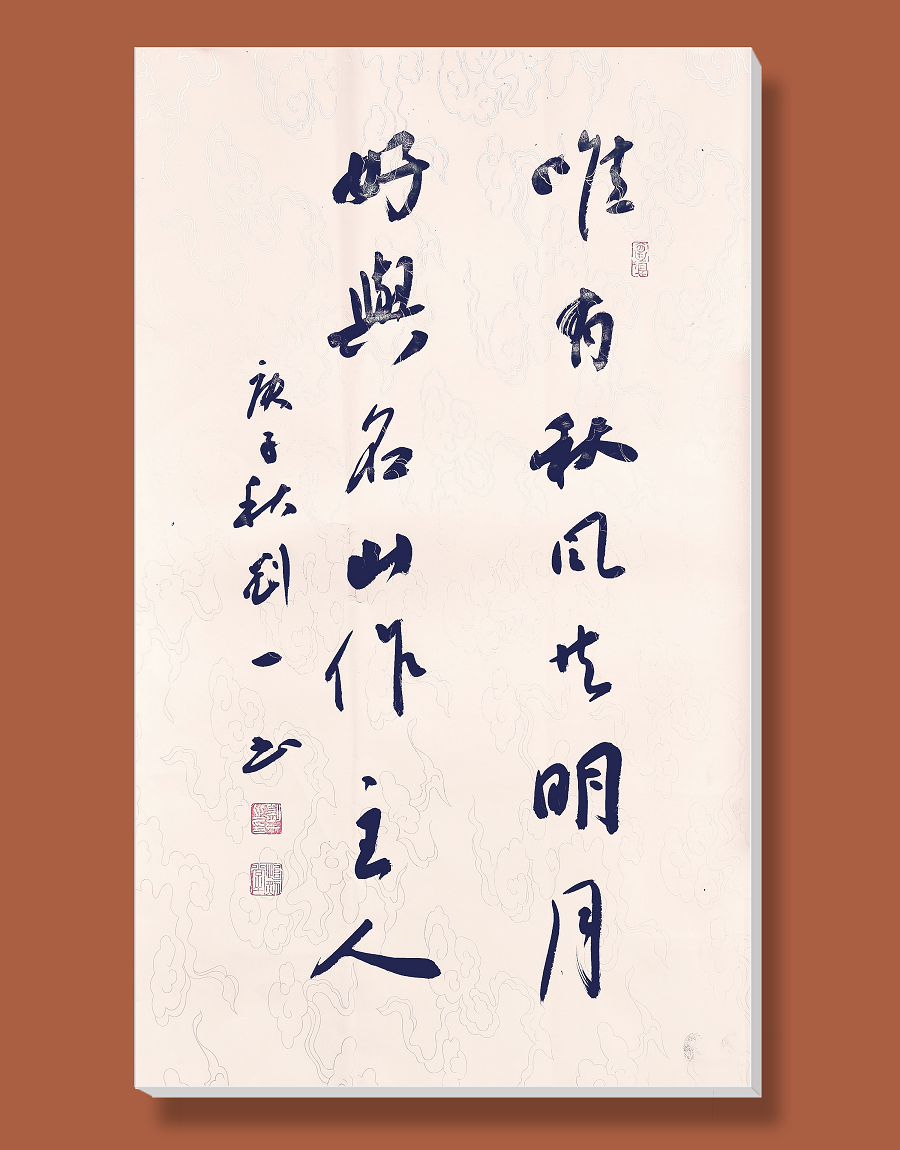 唯有秋风共明月
好與名山作主人
庚子秋刘一书